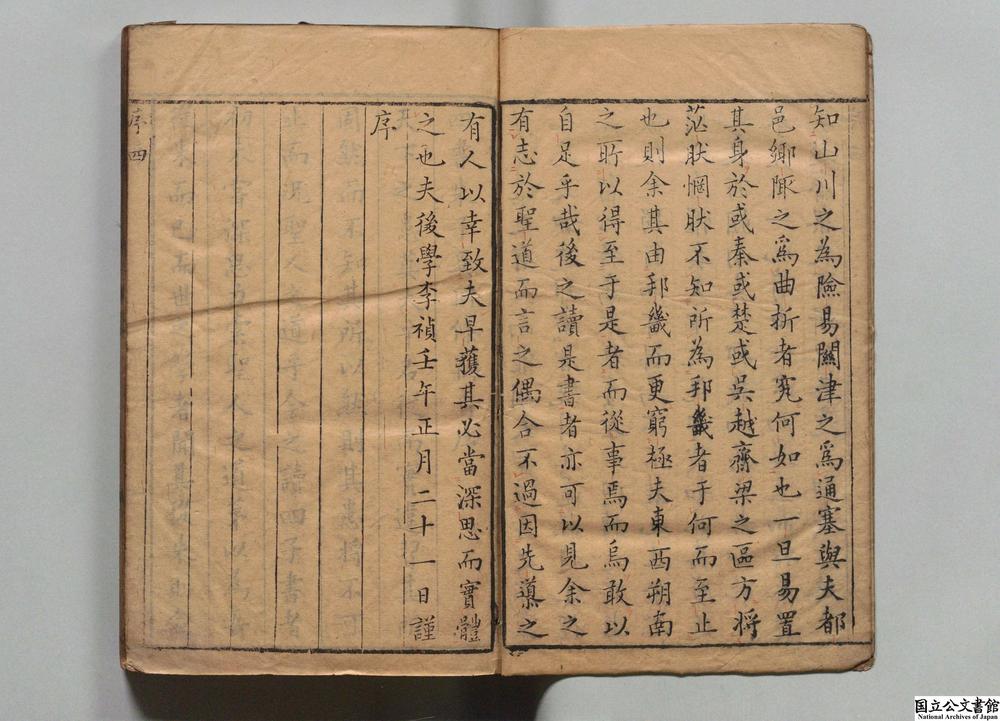 知山川之為險易關津之爲通塞與夫都
邑鄉陬之爲曲折者究何如也一旦易置
其身於或秦或楚或吳越齊梁之區方將
茫肰惘肰不知所為邦畿者于何而至止
也則余其由邦畿而更窮極夫東西朔南
之所以得至于是者而從事焉而烏敢以
自足乎哉後之讀是書者亦可以見余之
有志於聖道而言之偶合不過因先導之
有人以幸致夫早獲其必當深思而實體
之也夫後學李禎壬午正月二十一日謹
序
序四
国立公文書館
National Archives of Japan